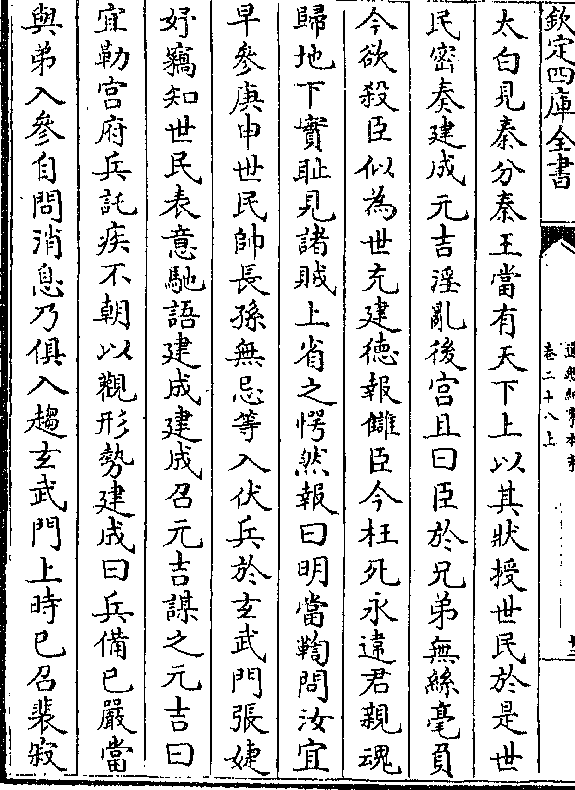 欽定四庫全書
通鑑紀事本末
卷二十八上
太白見秦分秦王當有天下上以其狀授世民於是世
民密奏建成元吉淫亂後宮且曰臣於兄弟無絲毫負
今欲殺臣似為世充建德報讎臣今枉死永違君親魂
歸地下實耻見諸賊上省之愕然報曰明當鞫問汝宜
早參庚申世民帥長孫無忌等入伏兵於玄武門張婕
妤竊知世民表意馳語建成建成召元吉謀之元吉曰
宜勒宮府兵託疾不朝以觀形勢建成曰兵備已嚴當
與弟入參自問消息乃俱入趨玄武門上時已召裴寂